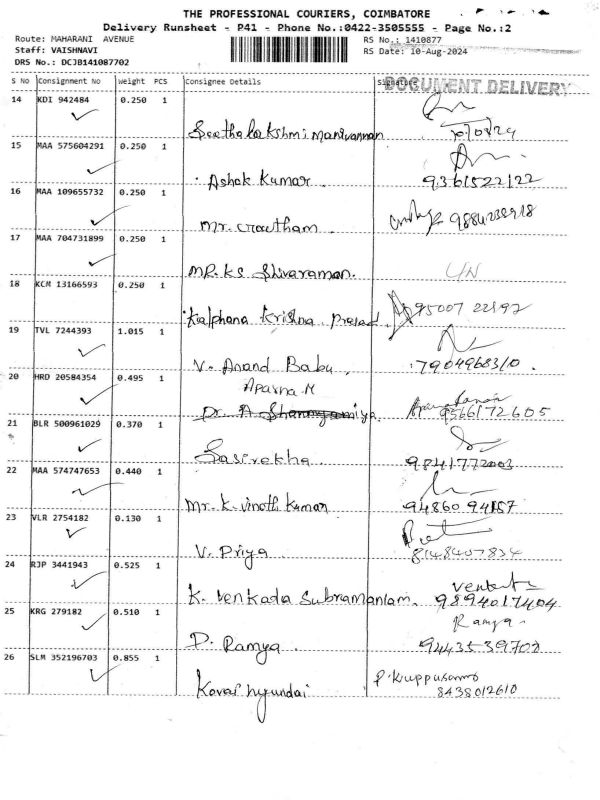 THE PROFESSIONAL COURIERS, COIMBATORE
Delivery Runsheet - P41 - Phone No.:0422-3505555 - Page No.:2
Route: MAHARANI AVENUE
RS No.: 1410877
Staff: VAISHNAVI
RS Date: 10-Aug-2024
DRS No.: DCJB141087702
DOCUMENT DELIVERY
S No Consignment No Weight PCS Consignee Details Signature
14 KDI 942484 0.250 1
Seethalakshmi Manivannan 10/08/24
15 MAA 575604291 0.250 1
Ashok Kumar. 9361522122
16 MAA 109655732 0.250 1
Mr. Gowtham 9884238918
17 MAA 704731899 0.250 1
MR. KS Shivaraman.
18 KCM 13166593 0.250 1
Kalphana Krishna Prasad 95007 22192
19 TVL 7244393 1.015 1
V. Anand Babu, 7904968310.
20 HRD 20584354 0.495 1
Aparna M
Dr. A 9566172605
21 BLR 500961029 0.370 1
Sasirekha 9841772003
22 MAA 574747653 0.440 1
Mr. K. Vinoth Kumar 94860 94157
23 VLR 2754182 0.130 1
V. Priya 8148407834
24 RJP 3441943 0.525 1
K. Venkada Subramaniam. 9894017404
25 KRG 279182 0.510 1
Ramya
D. Ramya 9443539702
26 SLM 352196703 0.855 1
P. Kuppusamy
Kovai hyundai 8438012610